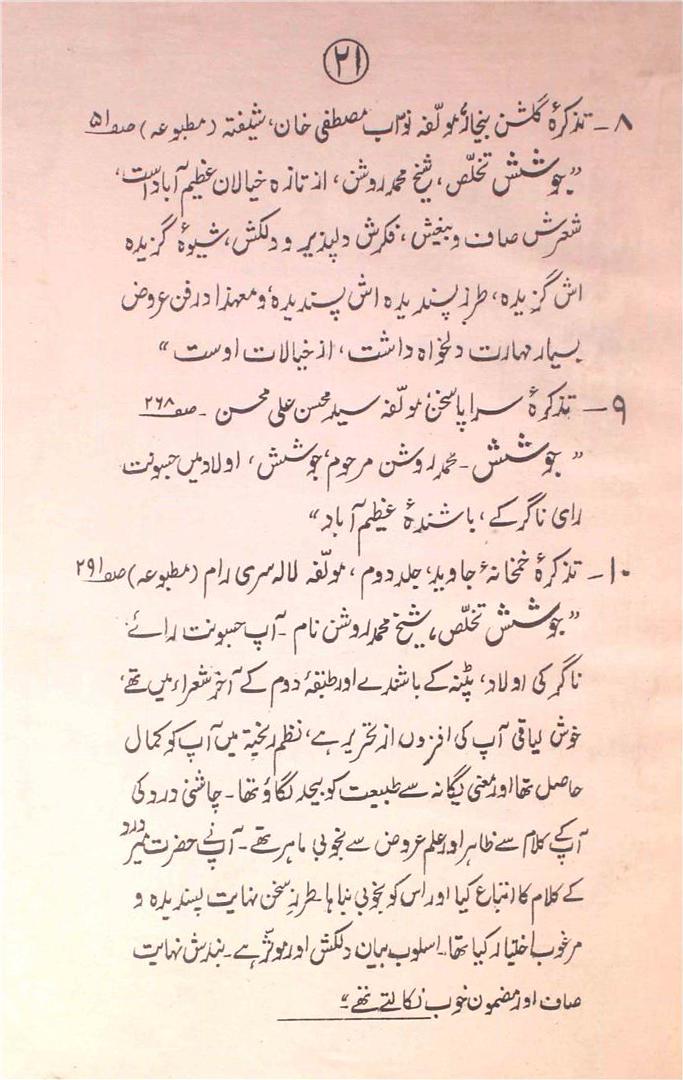 ۲۱
۸ ــ تذکرۂ گلشن بیخار، مولّفہ نواب مصطفی خان، شیفتہ (مطبوعہ) صفہ ۵۱
” جوشش تخلّص، شیخ محمد روشن، از تازہ خیالان عظیم آباد است،
شعرش صاف و بیغش، فکرش دلپذیر و دلکش، شیوۂ گزیدہ
اش گزیدہ، طرز پسندیدہ اش پسندیدہ، و معہذا در فن عروض
بسیار مہارت دلخواہ داشت، از خیالات اوست “
۹ ــ تذکرۂ سراپا سخن، مولّفہ سید محسن علی محسن ۔ صفہ ۲۶۸
” جوشش ۔ محمد روشن مرحوم، جوشش، اولاد میں جسونت
رای ناگر کے، باشندۂ عظیم آباد “
۱۰ ــ تذکرۂ خمخانۂ جاوید، جلد دوم، مولّفہ لالہ سری رام (مطبوعہ) صفہ ۲۹۱
” جوشش تخلّص، شیخ محمد روشن نام ۔ آپ جسونت رائے
ناگر کی اولاد، پٹنہ کے باشندے اور طبقۂ دوم کے آخر شعراء میں تھے،
خوش لیاقی آپ کی افزوں از تحریر ہے، نظم ریختہ میں آپ کو کمال
حاصل تھا اور معنی بیگانہ سے طبیعت کو بیحد لگاؤ تھا ۔ چاشنی درد کی
آپ کے کلام سے ظاہر اور علم عروض سے بخوبی ماہر تھے ۔ آپ نے حضرت میر درد
کے کلام کا اتباع کیا اور اس کو بخوبی نباہا۔ طرز سخن نہایت پسندیدہ و
مرغوب اختیار کیا تھا۔ اسلوب بیان دلکش اور موثّر ہے ۔ بندش نہایت
صاف اور مضمون خوب نکالتے تھے “